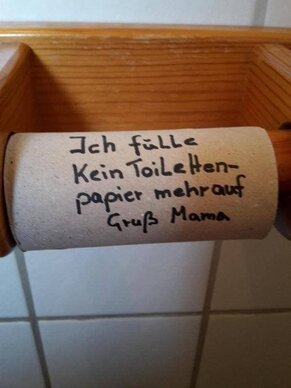 Ich fülle
Kein Toiletten-
papier mehr auf
Gruß Mama